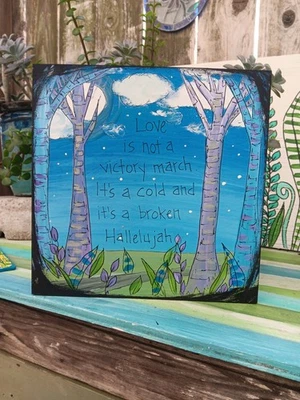 Love
is not a
victory march
It's a cold and
it's a broken
Hallelujah